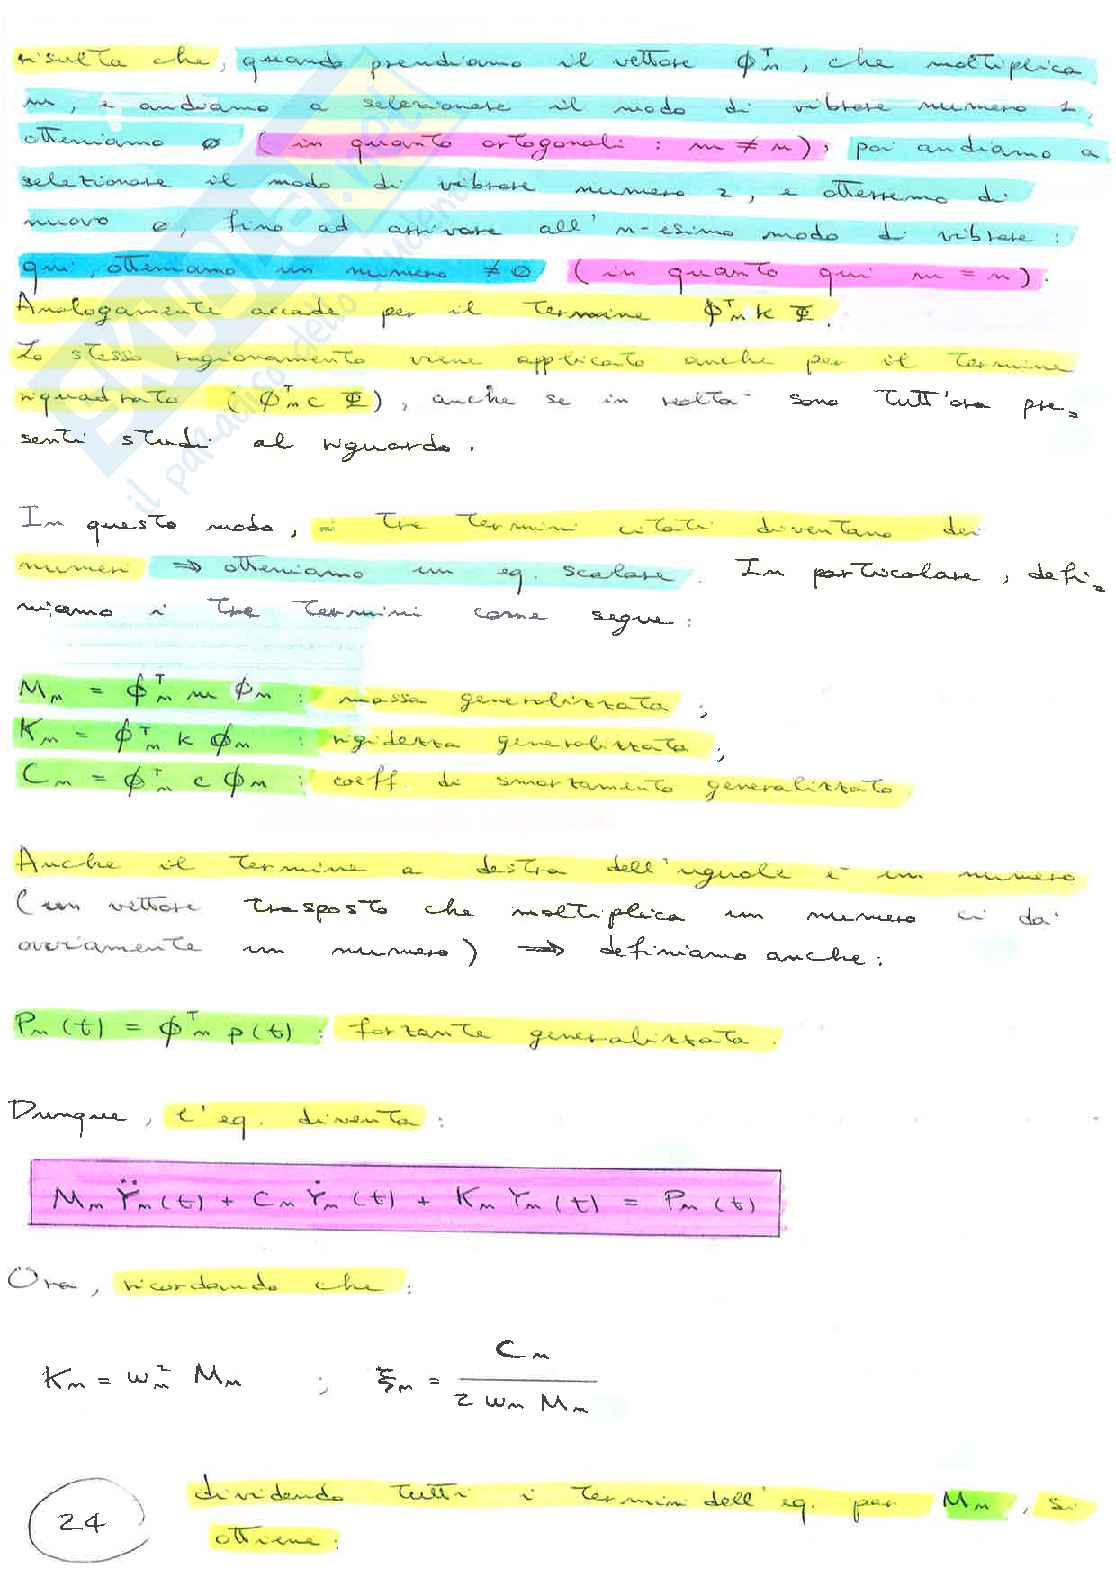 risulta che, quando prendiamo il vettore ϕᵀn, che moltiplica
m, e andiamo a selezionare il modo di vibrare numero 1,
otteniamo 0 (in quanto ortogonali : m ≠ n), poi andiamo a
selezionare il modo di vibrare numero 2, e otterremo di
nuovo 0, fino ad arrivare all'n-esimo modo di vibrare :
qui, otteniamo un numero ≠ 0 (in quanto qui m = n).
Analogamente accade per il termine ϕᵀn k Φ.
Lo stesso ragionamento viene applicato anche per il termine
riquadrato (ϕᵀn c Φ), anche se in realtà sono tutt'ora pre=
senti studi al riguardo.
In questo modo, i tre termini citati diventano dei
numeri ⇒ otteniamo un eq. scalare. In particolare, defi=
niamo i tre termini come segue :
Mn = ϕᵀn m ϕn : massa generalizzata ;
Kn = ϕᵀn k ϕn : rigidezza generalizzata ;
Cn = ϕᵀn c ϕn : coeff. di smorzamento generalizzato.
Anche il termine a destra dell'uguale è un numero
(un vettore trasposto che moltiplica un numero ci dà
ovviamente un numero) ⇒ definiamo anche :
Pn(t) = ϕᵀn p(t) : forzante generalizzata.
Dunque, l'eq. diventa :
Mn Ÿn(t) + Cn Ẏn(t) + Kn Yn(t) = Pn(t)
Ora, ricordando che :
Kn = ωn² Mn ; ξn = Cn / 2 ωn Mn
dividendo tutti i termini dell'eq. per Mn, si
ottiene :
24
SKUOLA.net
il paradiso dello studente